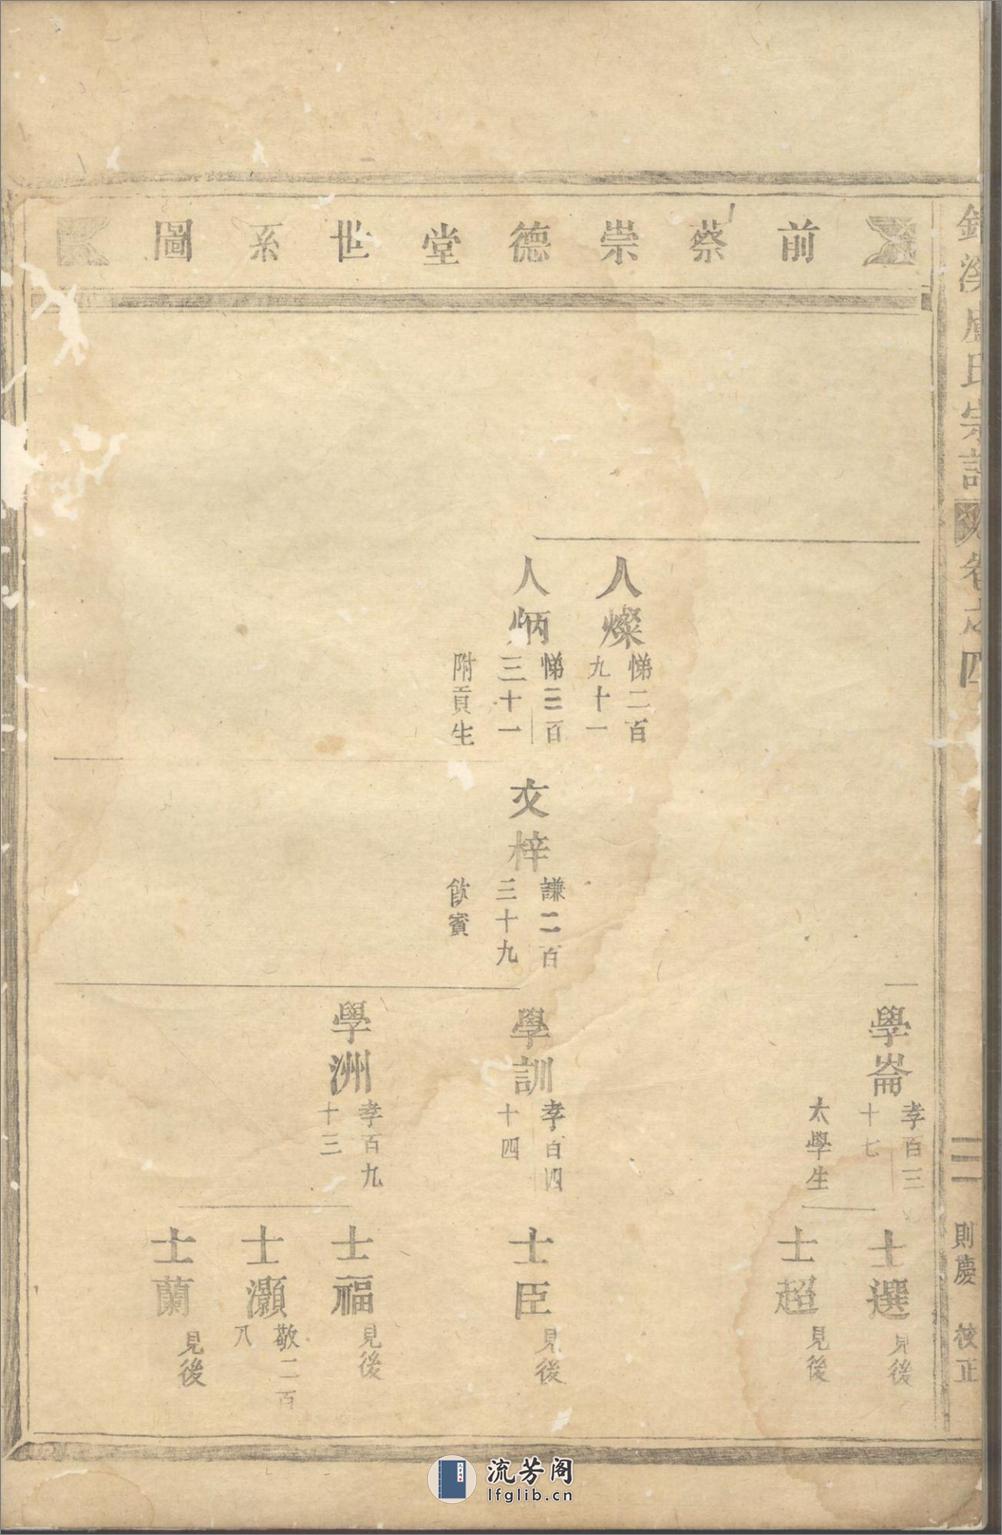 前蔡崇德堂世系圖
溪盧氏宗譜
卷之四
三
則慶 校正
人燦
悌二百
九十一
人炳
悌三百
三十一
附貢生
文梓
謙二百
三十九
飲賓
學崙
孝百三
十七
太學生
學訓
孝百四
十四
學洲
孝百九
十三
士選
見後
士超
見後
士臣
見後
士福
見後
士灝
敬二百
八
士蘭
見後
流芳阁
lfglib.cn